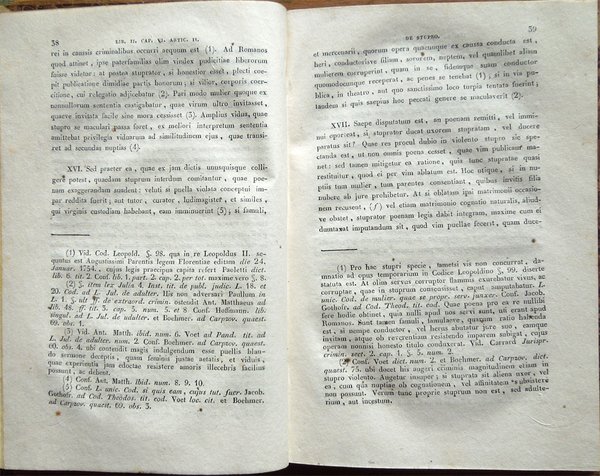 38 LIB. II. CAP. XI. ARTIC. II.
rei in causis criminalibus occurri aequum est (1). Ad Romanos
quod attinet, ipse paterfamilias olim vindex pudicitiae liberorum
fuisse videtur: at postea stuprator, si honestior esset, plecti coe-
pit publicatione dimidiae partis honorum; si vilior, corporis coer-
citione, cui relegatio adjicebatur (2). Pari modo mulier quoque ex
nonnullorum sententia castigabatur, quae virum ultro invitasset,
quaeve invitata facile sine mora cessisset (3). Amplius vidua, quae
stupro se maculari passa foret, ex meliori interpretum sententia
amittebat privilegia viduarum ad similitudinem ejus, quae transi-
ret ad secundas nuptias (4).
XVI. Sed praeter ea, quae ex jam dictis unusquisque colli
gere potest, quaedam stuprum interdum comitantur, quae poe-
nam exaggerandam suadent: veluti si puella violata conceptui im-
par reddita fuerit; aut tutor, curator, ludimagister, et similes,
qui virginis custodiam habebant, eam imminuerint (5); si famuli,
(1) Vid. Cod. Leopold. §. 98. qua in re Leopoldus II. se-
quutus est Augustissimi Parentis legem Florentiae editam die 24.
Januar. 1754., cujus legis praecipua capita refert Paoletti dict.
lib. 6. tit. 2. Conf. bic. 1. part. 2. cap. 2. per tot. maxime vero §. 8.
(2) §. item lex Julia 4. Inst. tit. de publ. judic. L. 18. et
20. Cod. ad L. Jul. de adulter. His non adversari Paullum in
L. 1. § ult ff. de extraord. crimin. ostendit Ant. Matthaeus ad
lib. 48. ff. tit. 3. cap. 5. num. 5. et 8 Conf. Hoffmann. lib.
singul. ad L. Jul. de adulter. et Boehmer. ad Carpzov. quaest.
69. obs. 1.
(3) Vid. Ant. Matth. ibid. num. 6. Voet ad Pand. tit. ad L.
Jul. de adulter. num. 2. Conf. Boehmer. ad Carpzov. quaest.
69. obs. 4. ubi contendit magis indulgendum esse puellis blan-
do sermone deceptis, quam feminis justae aetatis, et viduis,
quae experientia jam edoctae resistere amoris illecebris facilius
possunt, ac debent.
(4) Conf. Ant. Matth. ibid num. 8. 9. 10.
(5) Conf. L. unic. Cod. si quis eam, cujus tut. fuer. Jacob.
Gothofr. ad Cod. Theodos. tit. eod. Voet loc. cit. et Boehmer.
ad Carpzov. quaest. 69. obs. 3.
DE STUPRO. 39
et mercenarii, quorum opera quacumque ex caussa conducta est,
heri, conductorisve filiam, sororem, neptem, vel quamlibet aliam
mulierem corruperint, quam in se, fidemque suam conductor
quodammodo receperat, ac penes se tenebat (1); si in via pu-
blica, in theatro, aut quo sanctissimo loco turpia tentata fuerint;
laudem si quis saepius hoc peccati genere se maculaverit (2).
XVII. Saepe disputatum est, an poenam remitti, vel immi-
nui oporteat, si stuprator ducat uxorem stupratam, vel ducere
paratus sit? Quae res procul dubio in violento stupro sic spe-
ctanda est, ut non omnis poena cesset, quae vim publicam ma-
net: sed tamen mitigetur ea ratione, quia tunc stupratae quasi
restituitur, quod ei per vim ablatum est. Hoc utique, si in nu-
ptiis tum mulier, tum parentes consentiant, quibus invitis filia
nubere ab jure prohibetur. At si oblatam ipsi matrimonii occasio-
nem recusent, (f) vel etiam matrimonio cognatio naturalis, aliud-
ve obstet, stuprator poenam legis dabit integram, maxime cum ei
dumtaxat imputandum sit, quod vim puellae fecerit, quam duce-
(1) Pro hac stupri specie, tametsi vis non concurrat, da-
mnatio ad opus temporarium in Codice Leopoldino §. 99. diserte
statuta est. At olim servus corruptor flammis exurebatur vivus, et
stuprator, quae in stuprum consensisset, caput amputabatur. L.
unic. Cod. de mulier. quae se propr. serv. junxer. Conf. Jacob.
Gothofr. ad Cod. Theod. tit. eod. Quae poena pro ea re nullibi
fere hodie obtinet, quin nulli apud nos servi sunt, uti erant apud
Romanos. Sunt tamen famuli, honulares, quorum ratio habenda
est, si nempe conductor, vel herus abutatur jure suo, eamque
invitam, atque ob reverentiam resistendo imparem subigat, cujus
operam nonnisi honesto titulo conduxerat. Vid. Carrard Jurispr.
crimin. sect. 2. cap. 4. §. 5. num. 2.
(2) Conf. Voet dict num. 2. et Boehmer. ad Carpzov. dict.
quaest. 75. ubi docet his augeri criminis magnitudinem etiam in
stupro violento. Augetur insuper; si stuprata sit aliena uxor, vel
ea, cum qua nuptiae ob cognationem, vel affinitatem subsistere
non possunt. Verum tunc proprie stuprum non est, sed adulte-
rium, aut incestum.